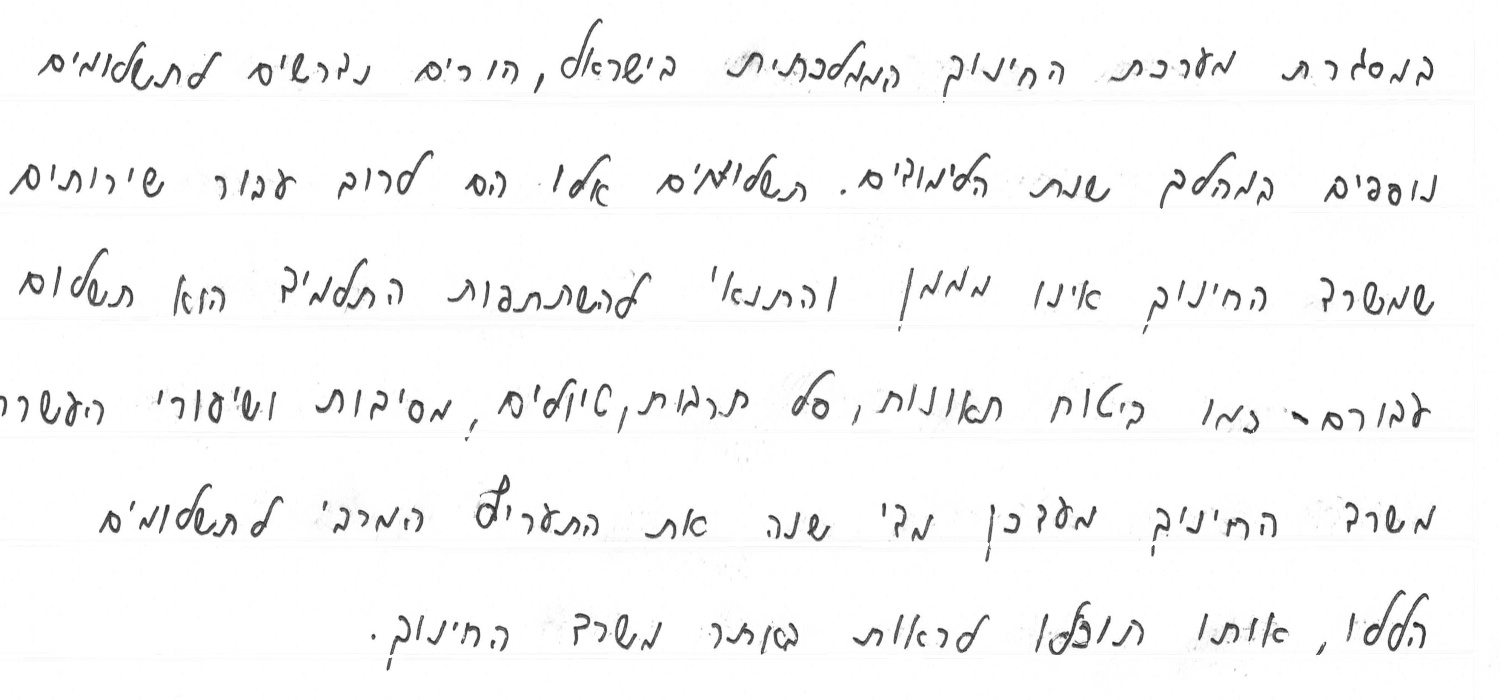 במסגרת מערכת החינוך הממלכתית בישראל, הורים נדרשים לתשלומים
נוספים במהלך שנת הלימודים. תשלומים אלו הם לרוב עבור שירותים
שמשרד החינוך אינו מממן והתנאי להשתתפות התלמיד הוא תשלום
עבורם - כמו ביטוח תאונות, סל תרבות, טיולים, מסיבות ושיעורי העשרה
משרד החינוך מעדכן מדי שנה את התעריף המרבי לתשלומים
הללו, אותו תוכלו לראות באתר משרד החינוך.